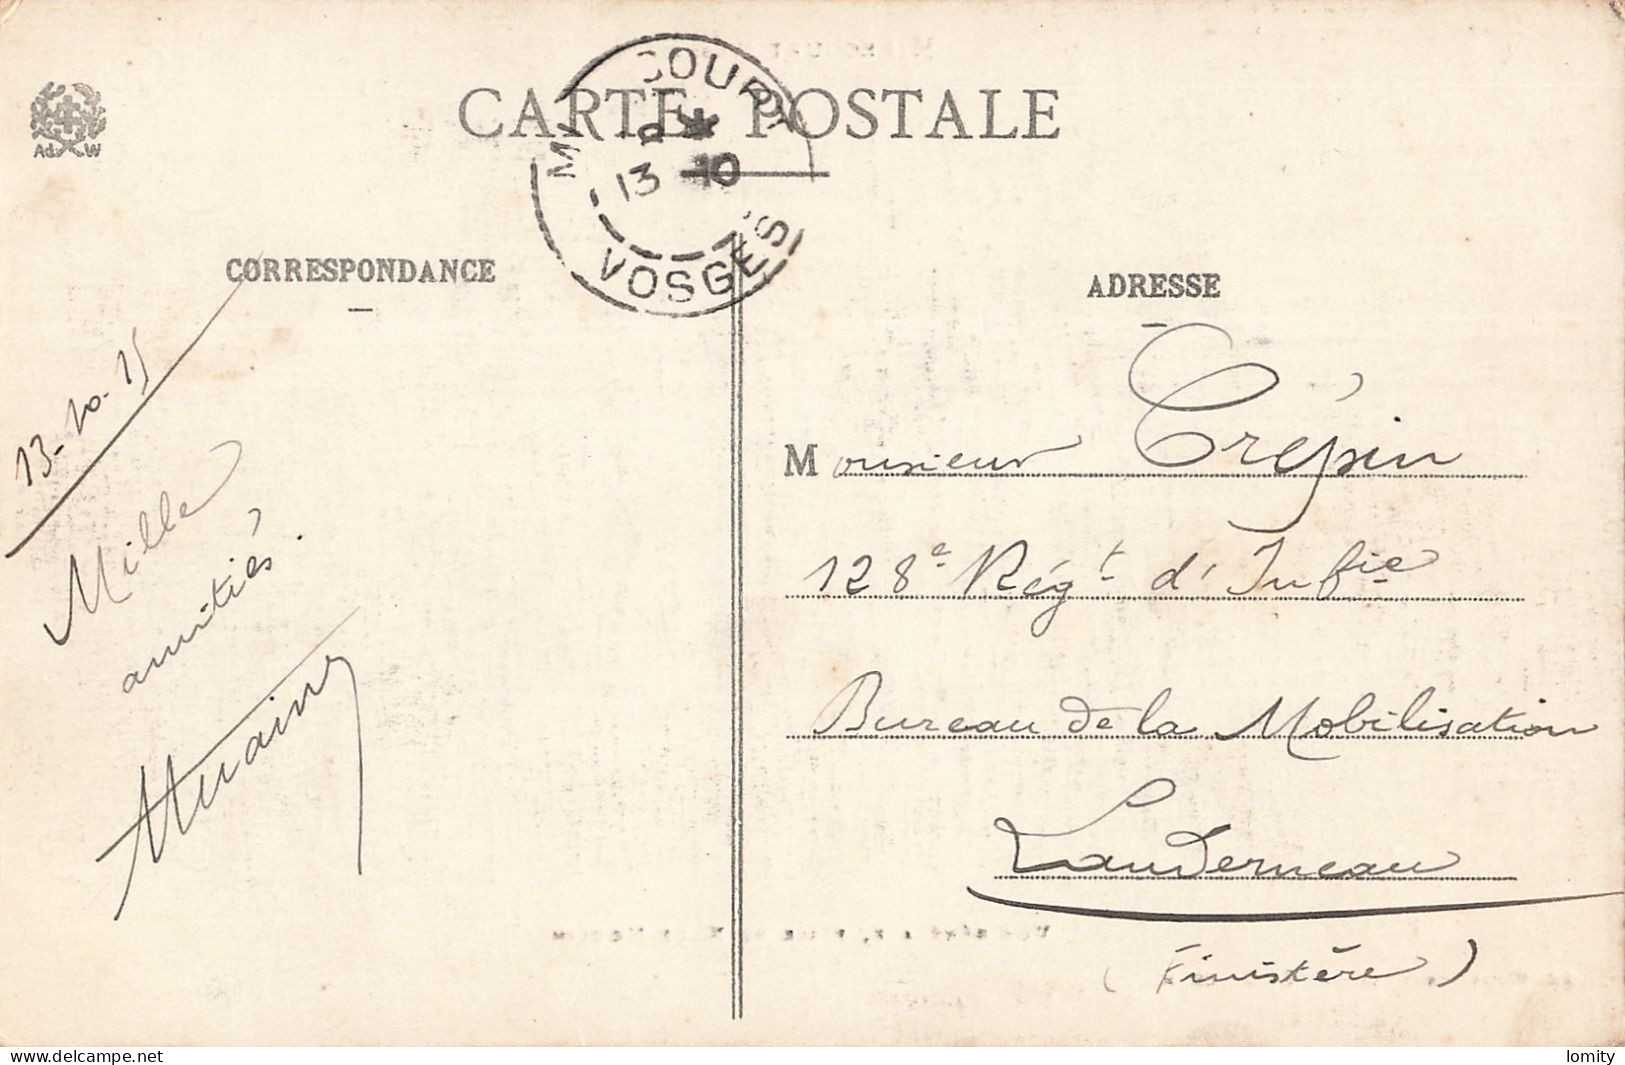 CARTE POSTALE
Ad W
MI COURT
13 -10
VOSGES
CORRESPONDANCE
ADRESSE
13-10-15
Mille
amitiés.
Monsieur Crépin
128e Régt d'Infie
Bureau de la Mobilisation
Landerneau
(Finistère)
www.delcampe.net
lomity